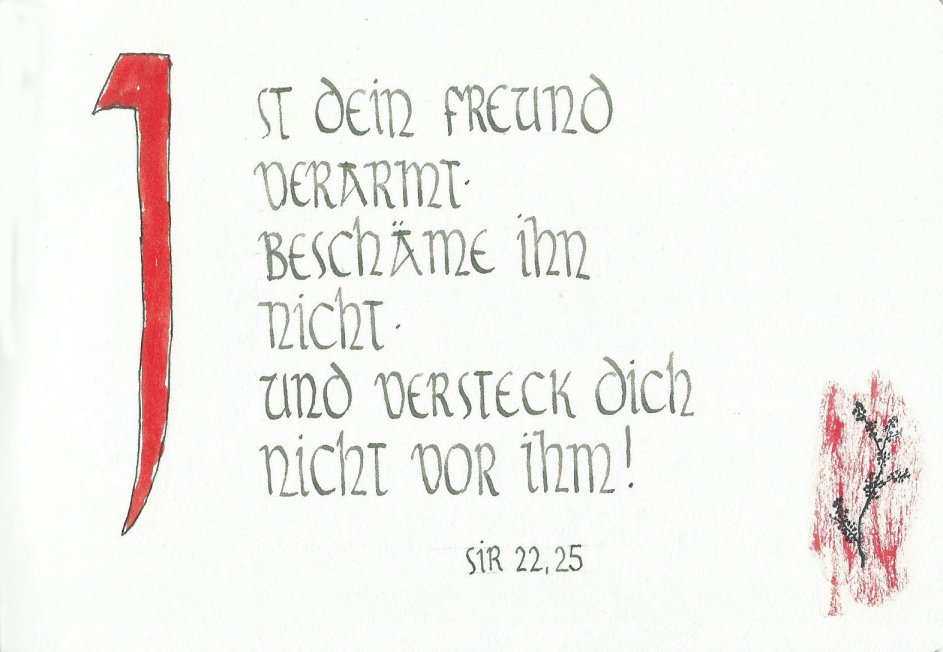 Ist dein Freund
verarmt·
beschäme ihn
nicht·
und versteck dich
nicht vor ihm!
Sir 22,25